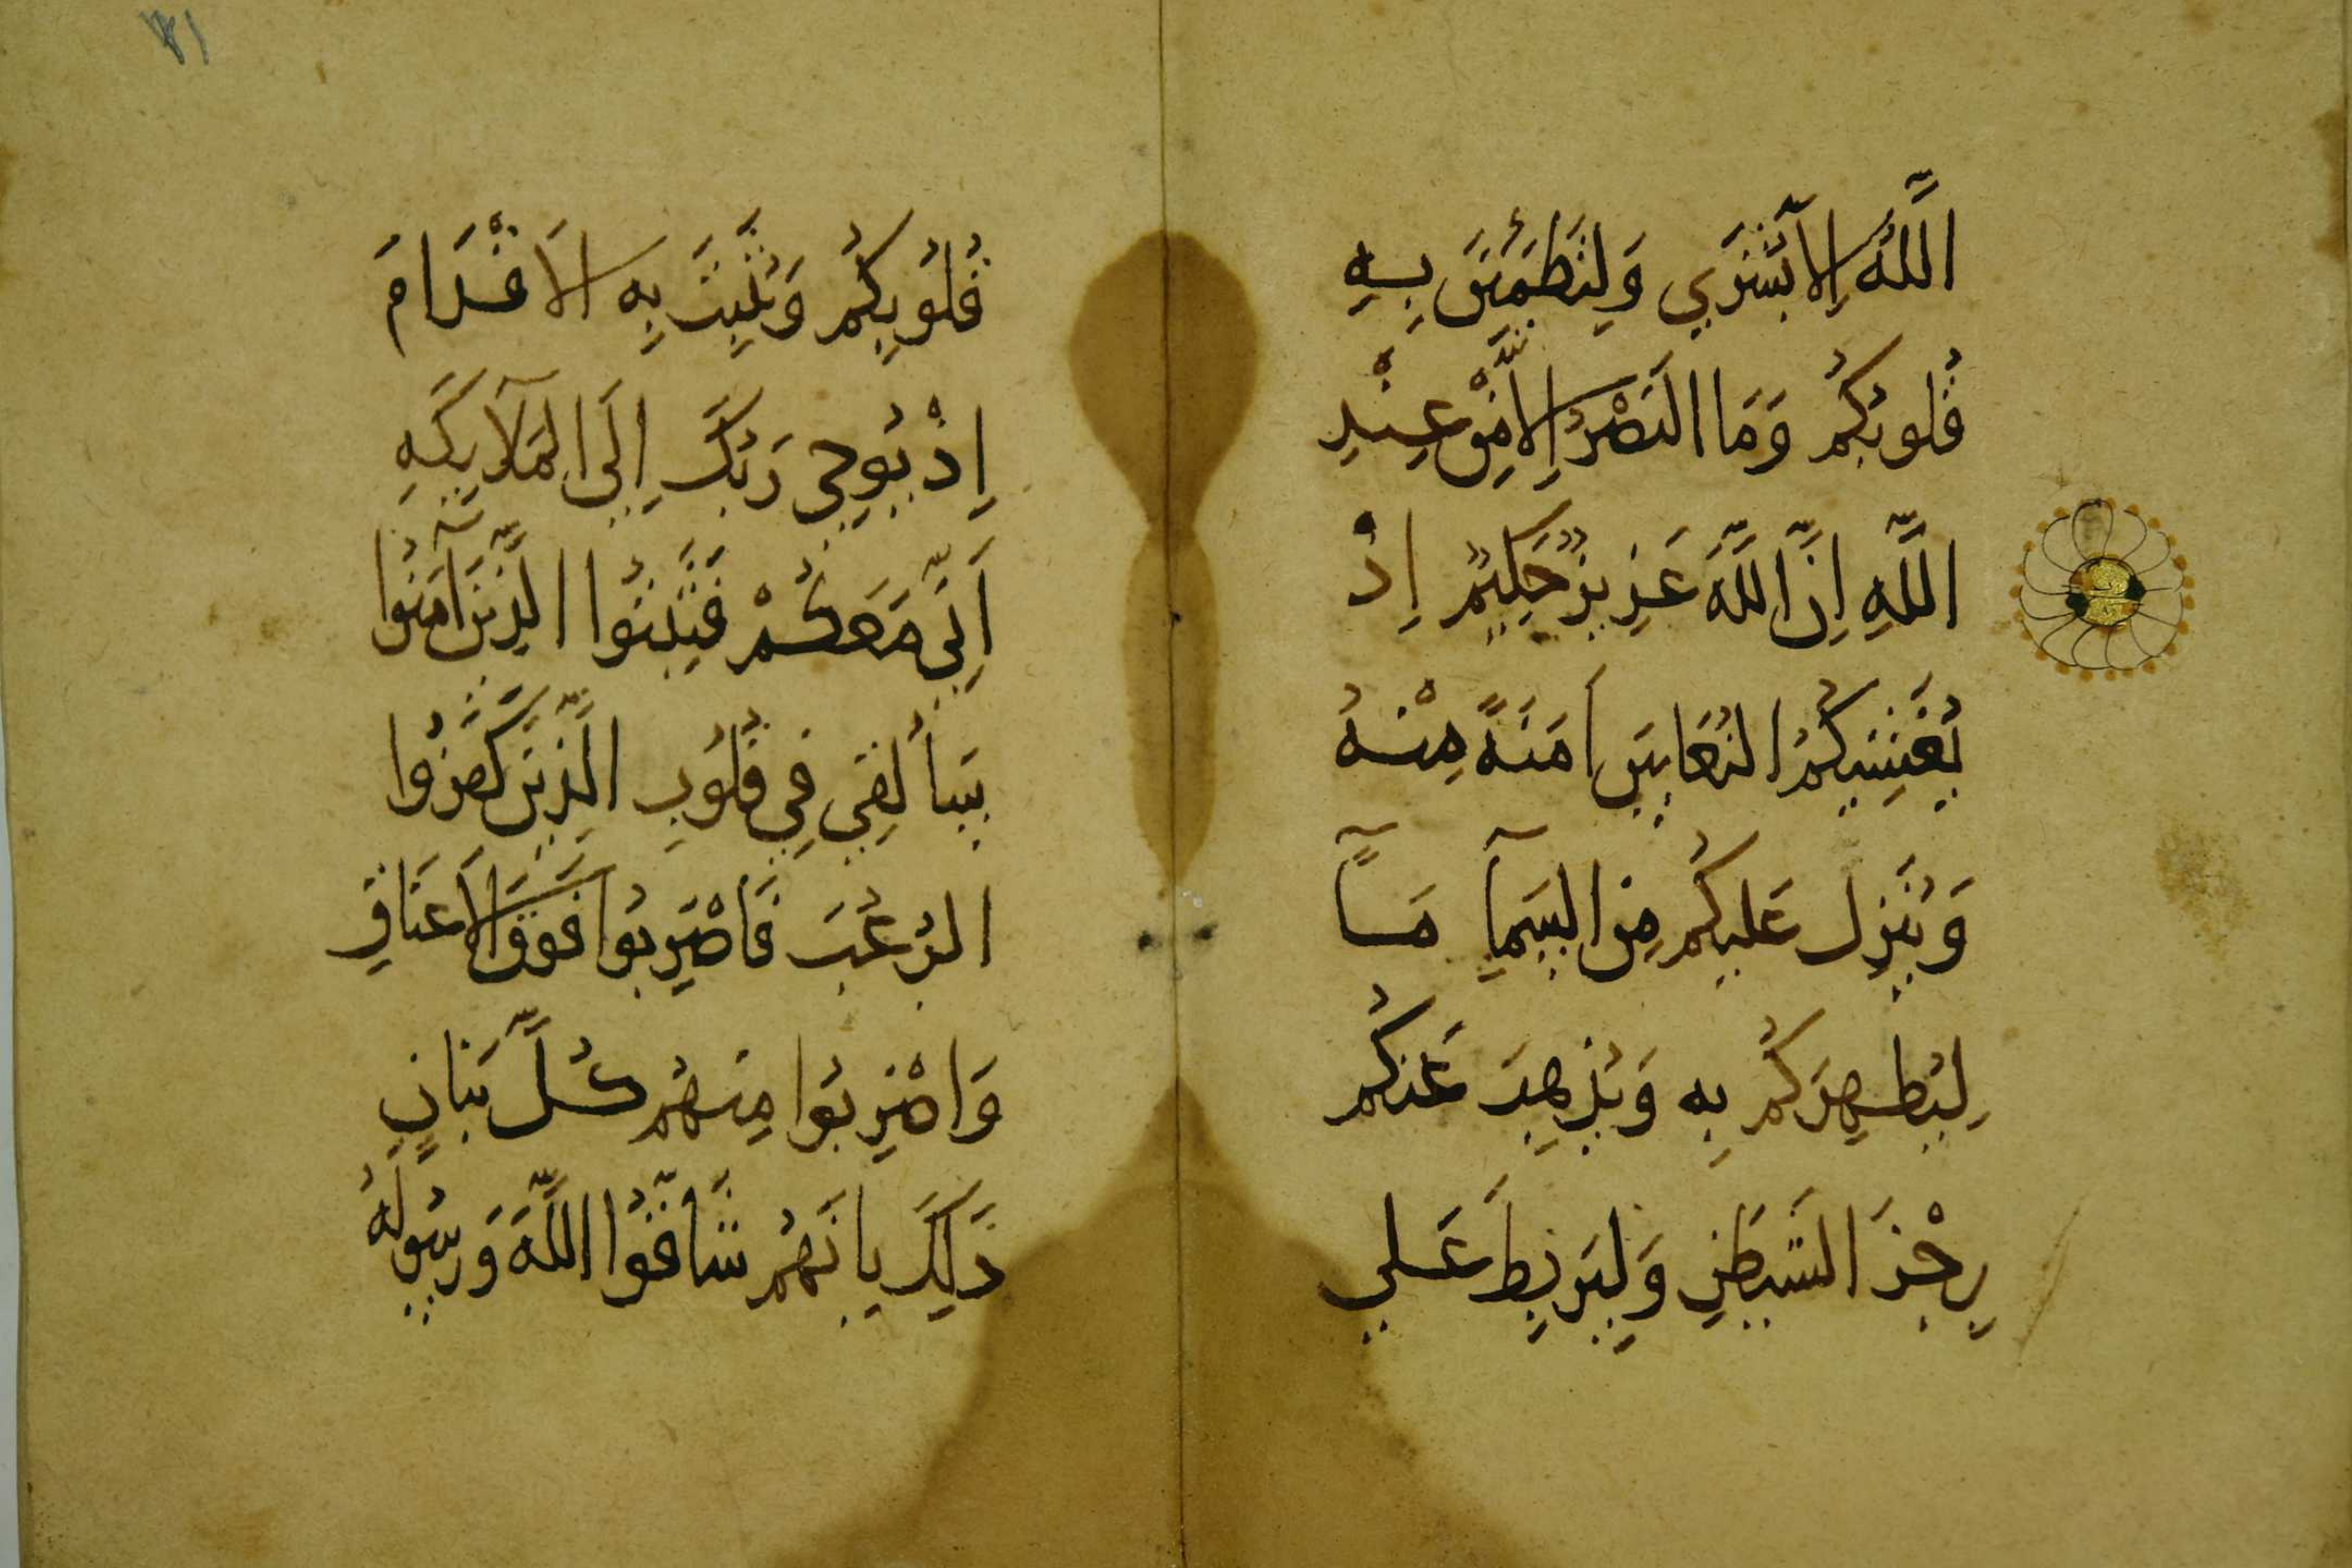 اللَّهُ إِلَّا بُشْرَى وَلِتَطْمَئِنَّ بِهِ
قُلُوبُكُمْ وَمَا النَّصْرُ إِلَّا مِنْ عِنْدِ
اللَّهِ إِنَّ اللَّهَ عَزِيزٌ حَكِيمٌ إِذْ
يُغَشِّيكُمُ النُّعَاسَ أَمَنَةً مِنْهُ
وَيُنَزِّلُ عَلَيْكُمْ مِنَ السَّمَآءِ مَآءً
لِيُطَهِّرَكُمْ بِهِ وَيُذْهِبَ عَنْكُمْ
رِجْزَ الشَّيْطَنِ وَلِيَرْبِطَ عَلَى
قُلُوبِكُمْ وَيُثَبِّتَ بِهِ الْأَقْدَامَ
إِذْ يُوحِي رَبُّكَ إِلَى الْمَلَآيِكَةِ
أَنِّي مَعَكُمْ فَثَبِّتُوا الَّذِينَ آمَنُوا
سَأُلْقِي فِي قُلُوبِ الَّذِينَ كَفَرُوا
الرُّعْبَ فَاضْرِبُوا فَوْقَ الْأَعْنَاقِ
وَاضْرِبُوا مِنْهُمْ كُلَّ بَنَانٍ
ذَلِكَ بِأَنَّهُمْ شَاقُّوا اللَّهَ وَرَسُولَهُ